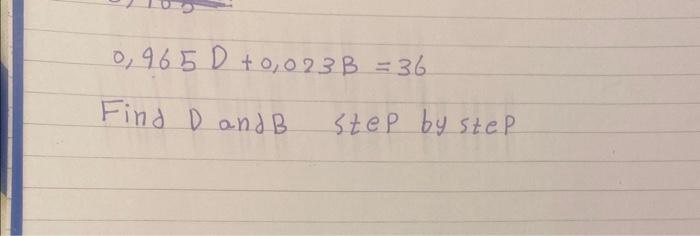 0,965 D + 0,023 B = 36
Find D and B step by step